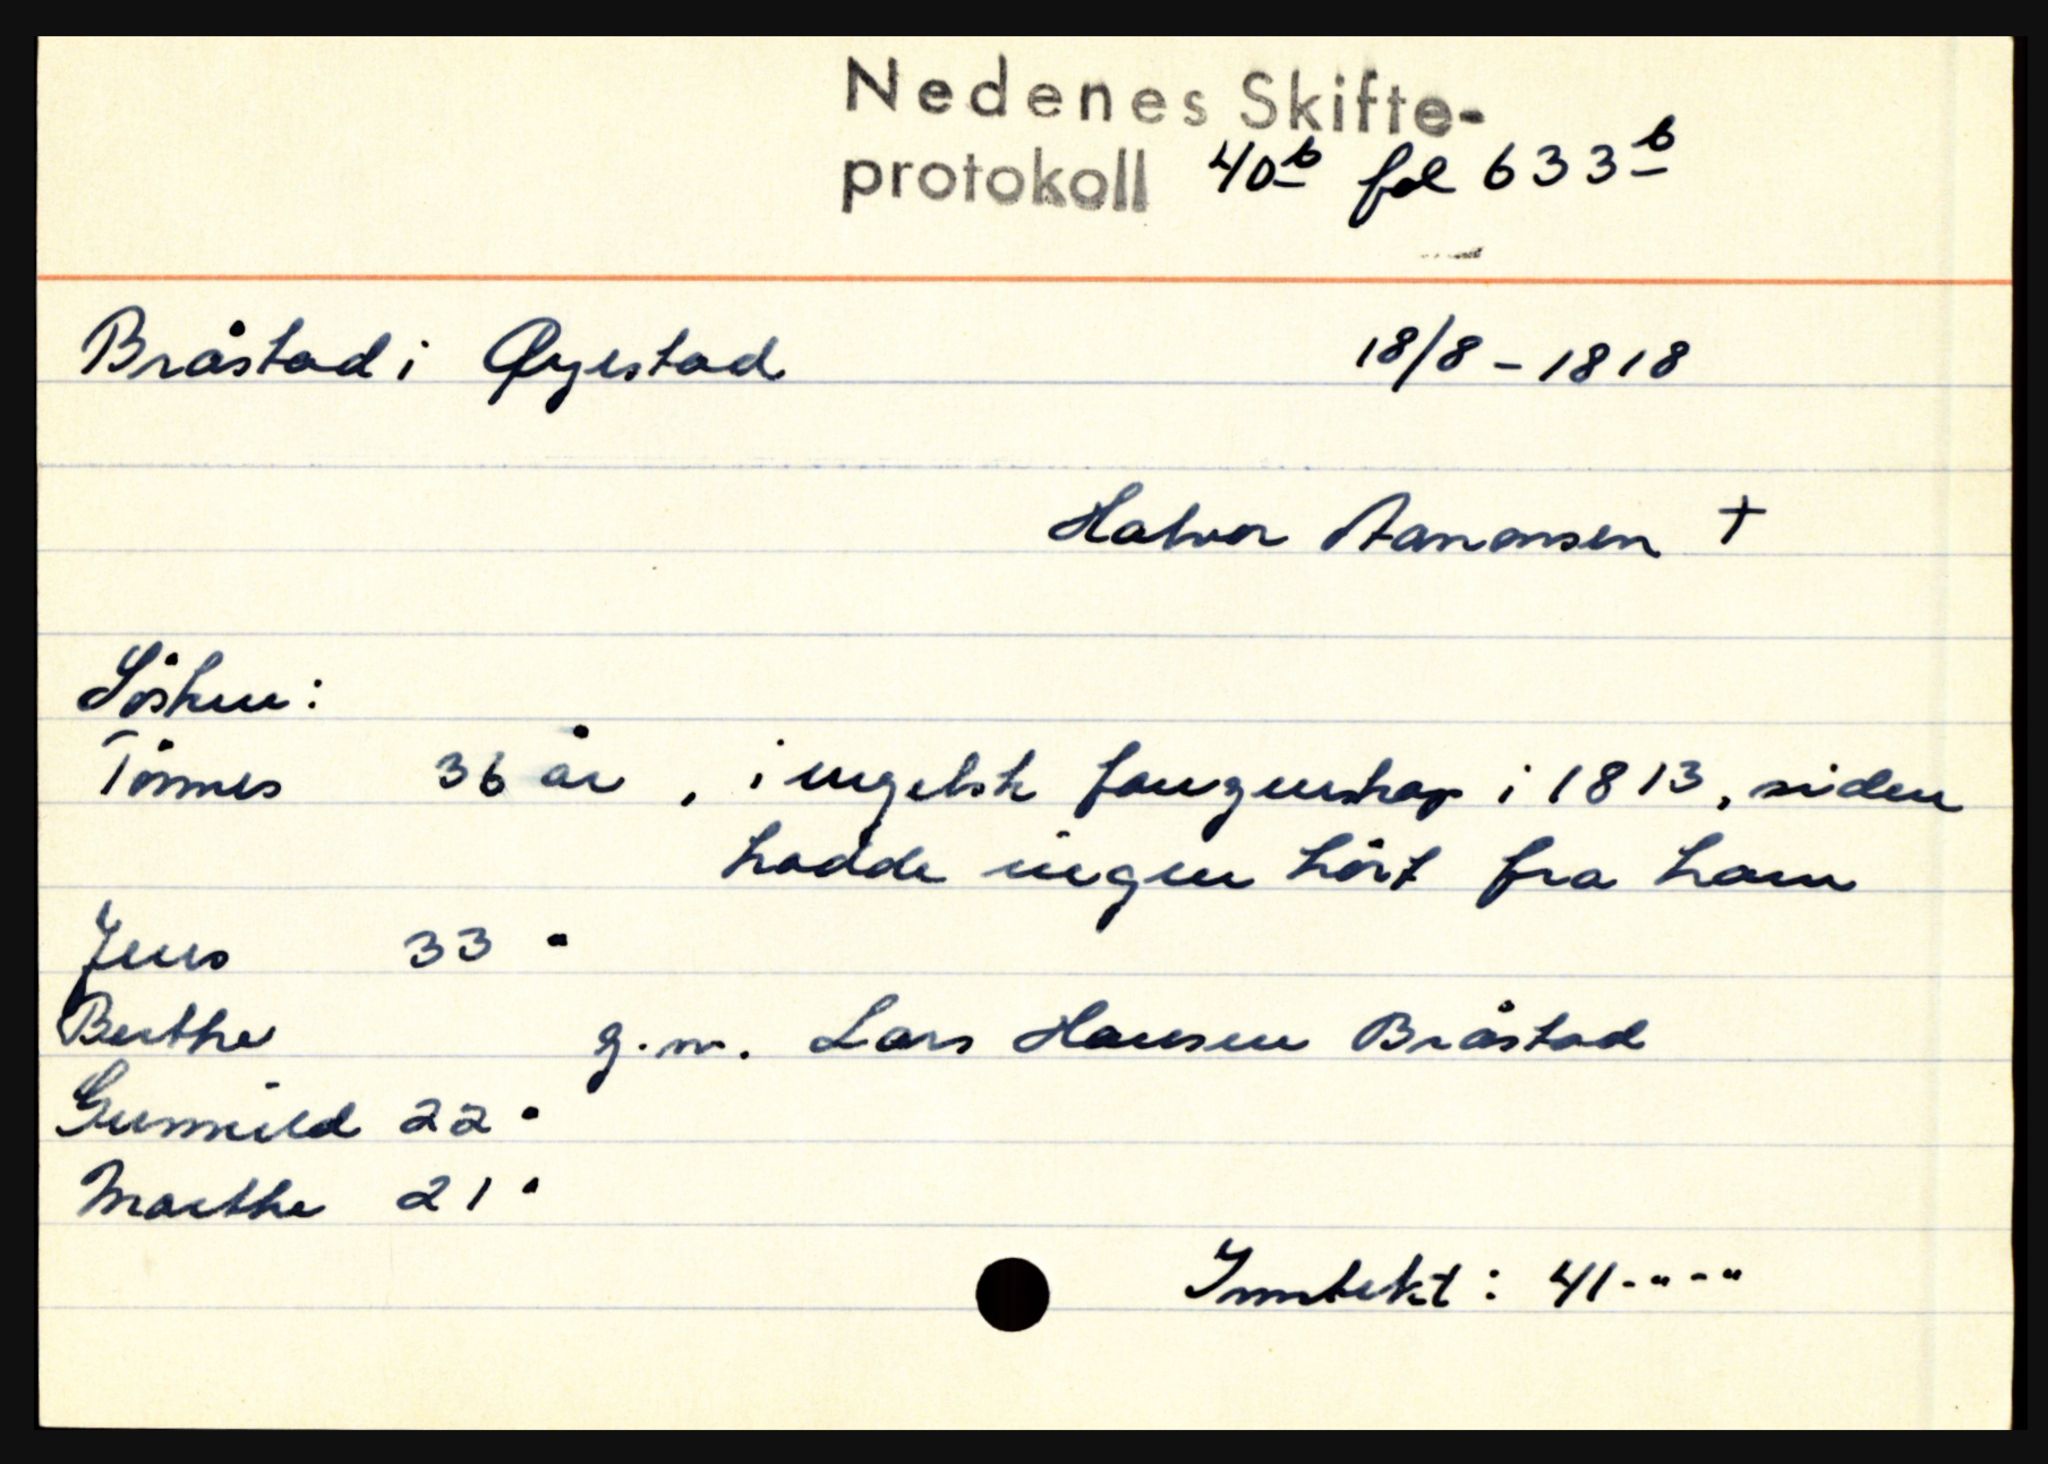 Nedenes Skifte-
protokoll 40b fol 633b
Bråstad i Øyestad 18/8-1818
Halvor Aanonsen †
Søsken:
Tönnes 36 år, i engelsk fangenskap i 1813, siden
hadde ingen hört fra ham
Jens 33 "
Berthe g.m. Lars Hansen Bråstad
Gunnild 22 "
Marthe 21 "
Inntekt: 41-"-"